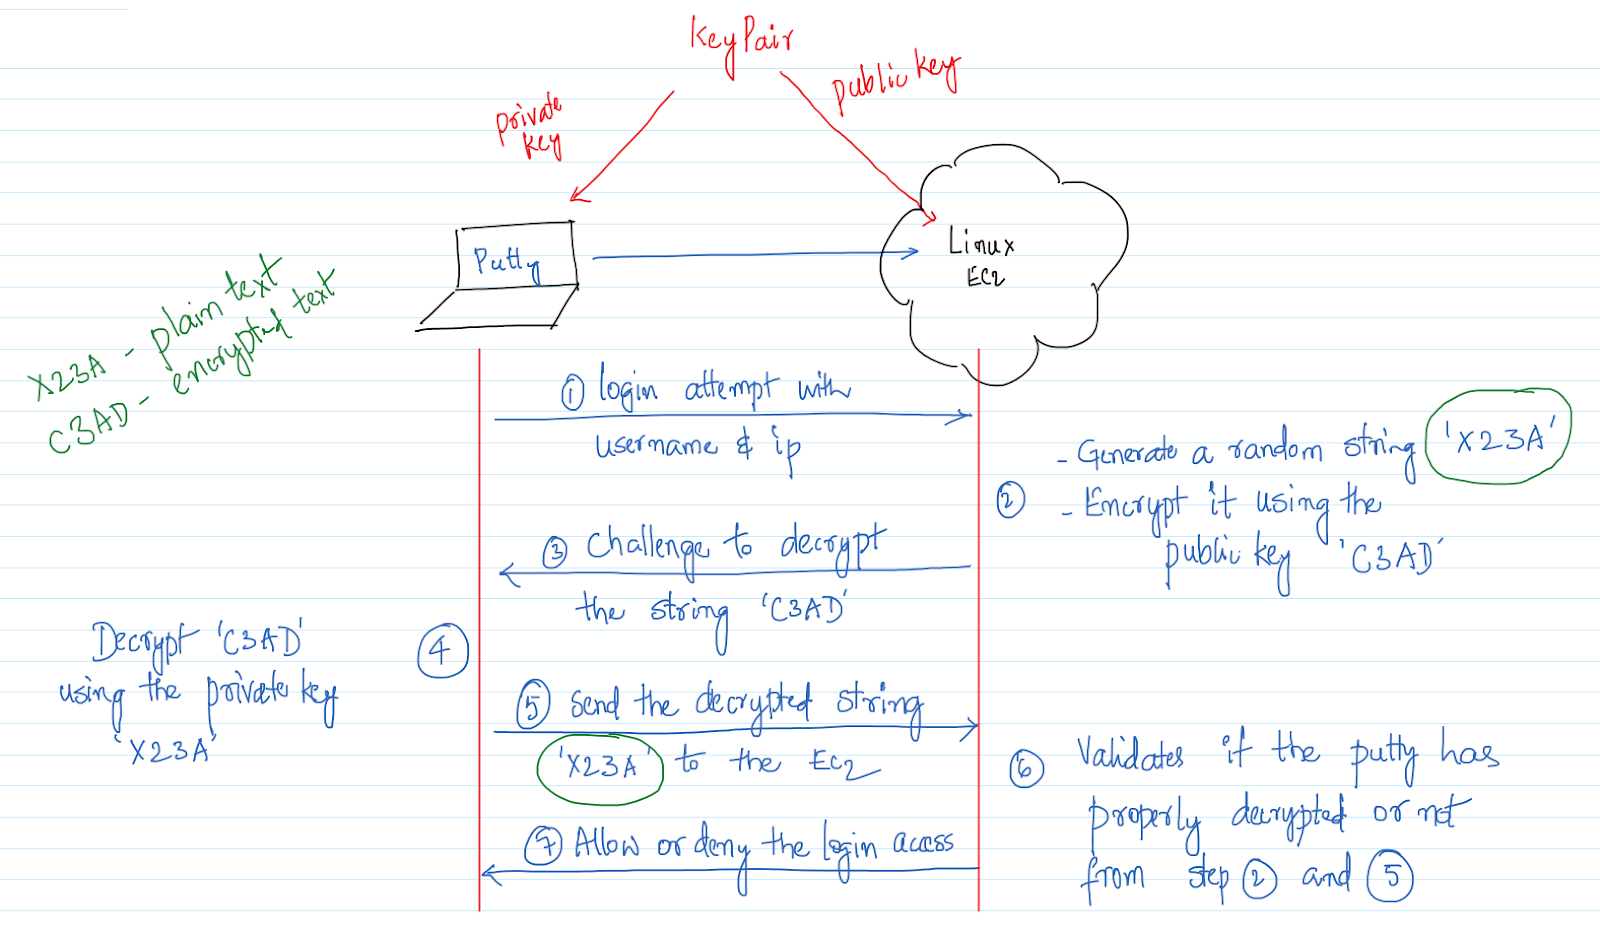 KeyPair
private
key
public key
Putty
Linux
EC2
X23A - plain text
C3AD - encrypted text
① login attempt with
username & ip
② - Generate a random string 'X23A'
- Encrypt it using the
public key 'C3AD'
③ Challenge to decrypt
the string 'C3AD'
④ Decrypt 'C3AD'
using the private key
'X23A'
⑤ Send the decrypted string
'X23A' to the EC2
⑥ Validates if the putty has
properly decrypted or not
from step ② and ⑤
⑦ Allow or deny the login access